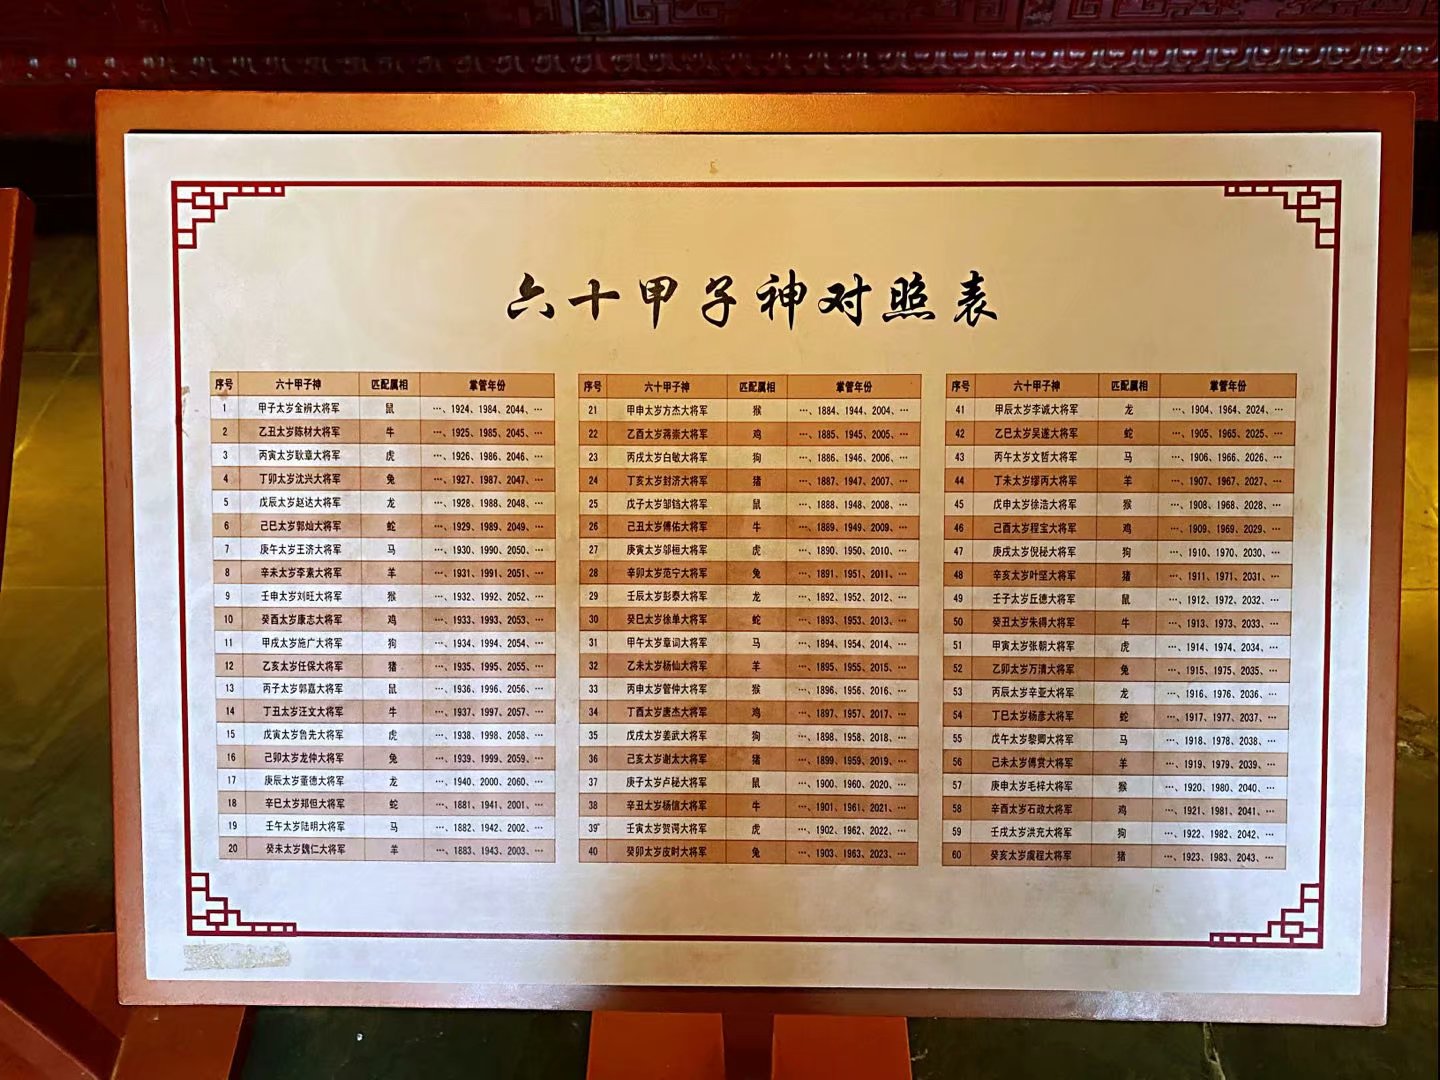 六十甲子神对照表
序号 六十甲子神 匹配属相 掌管年份
1 甲子太岁金辨大将军 鼠 …、1924、1984、2044、…
2 乙丑太岁陈材大将军 牛 …、1925、1985、2045、…
3 丙寅太岁耿章大将军 虎 …、1926、1986、2046、…
4 丁卯太岁沈兴大将军 兔 …、1927、1987、2047、…
5 戊辰太岁赵达大将军 龙 …、1928、1988、2048、…
6 己巳太岁郭灿大将军 蛇 …、1929、1989、2049、…
7 庚午太岁王济大将军 马 …、1930、1990、2050、…
8 辛未太岁李素大将军 羊 …、1931、1991、2051、…
9 壬申太岁刘旺大将军 猴 …、1932、1992、2052、…
10 癸酉太岁康志大将军 鸡 …、1933、1993、2053、…
11 甲戌太岁施广大将军 狗 …、1934、1994、2054、…
12 乙亥太岁任保大将军 猪 …、1935、1995、2055、…
13 丙子太岁郭嘉大将军 鼠 …、1936、1996、2056、…
14 丁丑太岁汪文大将军 牛 …、1937、1997、2057、…
15 戊寅太岁鲁先大将军 虎 …、1938、1998、2058、…
16 己卯太岁龙仲大将军 兔 …、1939、1999、2059、…
17 庚辰太岁董德大将军 龙 …、1940、2000、2060、…
18 辛巳太岁郑但大将军 蛇 …、1881、1941、2001、…
19 壬午太岁陆明大将军 马 …、1882、1942、2002、…
20 癸未太岁魏仁大将军 羊 …、1883、1943、2003、…
序号 六十甲子神 匹配属相 掌管年份
21 甲申太岁方杰大将军 猴 …、1884、1944、2004、…
22 乙酉太岁蒋崇大将军 鸡 …、1885、1945、2005、…
23 丙戌太岁白敏大将军 狗 …、1886、1946、2006、…
24 丁亥太岁封济大将军 猪 …、1887、1947、2007、…
25 戊子太岁邹铛大将军 鼠 …、1888、1948、2008、…
26 己丑太岁傅佑大将军 牛 …、1889、1949、2009、…
27 庚寅太岁邬桓大将军 虎 …、1890、1950、2010、…
28 辛卯太岁范宁大将军 兔 …、1891、1951、2011、…
29 壬辰太岁彭泰大将军 龙 …、1892、1952、2012、…
30 癸巳太岁徐单大将军 蛇 …、1893、1953、2013、…
31 甲午太岁章词大将军 马 …、1894、1954、2014、…
32 乙未太岁杨仙大将军 羊 …、1895、1955、2015、…
33 丙申太岁管仲大将军 猴 …、1896、1956、2016、…
34 丁酉太岁唐杰大将军 鸡 …、1897、1957、2017、…
35 戊戌太岁姜武大将军 狗 …、1898、1958、2018、…
36 己亥太岁谢太大将军 猪 …、1899、1959、2019、…
37 庚子太岁卢秘大将军 鼠 …、1900、1960、2020、…
38 辛丑太岁杨信大将军 牛 …、1901、1961、2021、…
39 壬寅太岁贺谔大将军 虎 …、1902、1962、2022、…
40 癸卯太岁皮时大将军 兔 …、1903、1963、2023、…
序号 六十甲子神 匹配属相 掌管年份
41 甲辰太岁李诚大将军 龙 …、1904、1964、2024、…
42 乙巳太岁吴遂大将军 蛇 …、1905、1965、2025、…
43 丙午太岁文哲大将军 马 …、1906、1966、2026、…
44 丁未太岁缪丙大将军 羊 …、1907、1967、2027、…
45 戊申太岁徐浩大将军 猴 …、1908、1968、2028、…
46 己酉太岁程宝大将军 鸡 …、1909、1969、2029、…
47 庚戌太岁倪秘大将军 狗 …、1910、1970、2030、…
48 辛亥太岁叶坚大将军 猪 …、1911、1971、2031、…
49 壬子太岁丘德大将军 鼠 …、1912、1972、2032、…
50 癸丑太岁朱得大将军 牛 …、1913、1973、2033、…
51 甲寅太岁张朝大将军 虎 …、1914、1974、2034、…
52 乙卯太岁万清大将军 兔 …、1915、1975、2035、…
53 丙辰太岁辛亚大将军 龙 …、1916、1976、2036、…
54 丁巳太岁杨彦大将军 蛇 …、1917、1977、2037、…
55 戊午太岁黎卿大将军 马 …、1918、1978、2038、…
56 己未太岁傅赏大将军 羊 …、1919、1979、2039、…
57 庚申太岁毛梓大将军 猴 …、1920、1980、2040、…
58 辛酉太岁石政大将军 鸡 …、1921、1981、2041、…
59 壬戌太岁洪充大将军 狗 …、1922、1982、2042、…
60 癸亥太岁虞程大将军 猪 …、1923、1983、2043、…